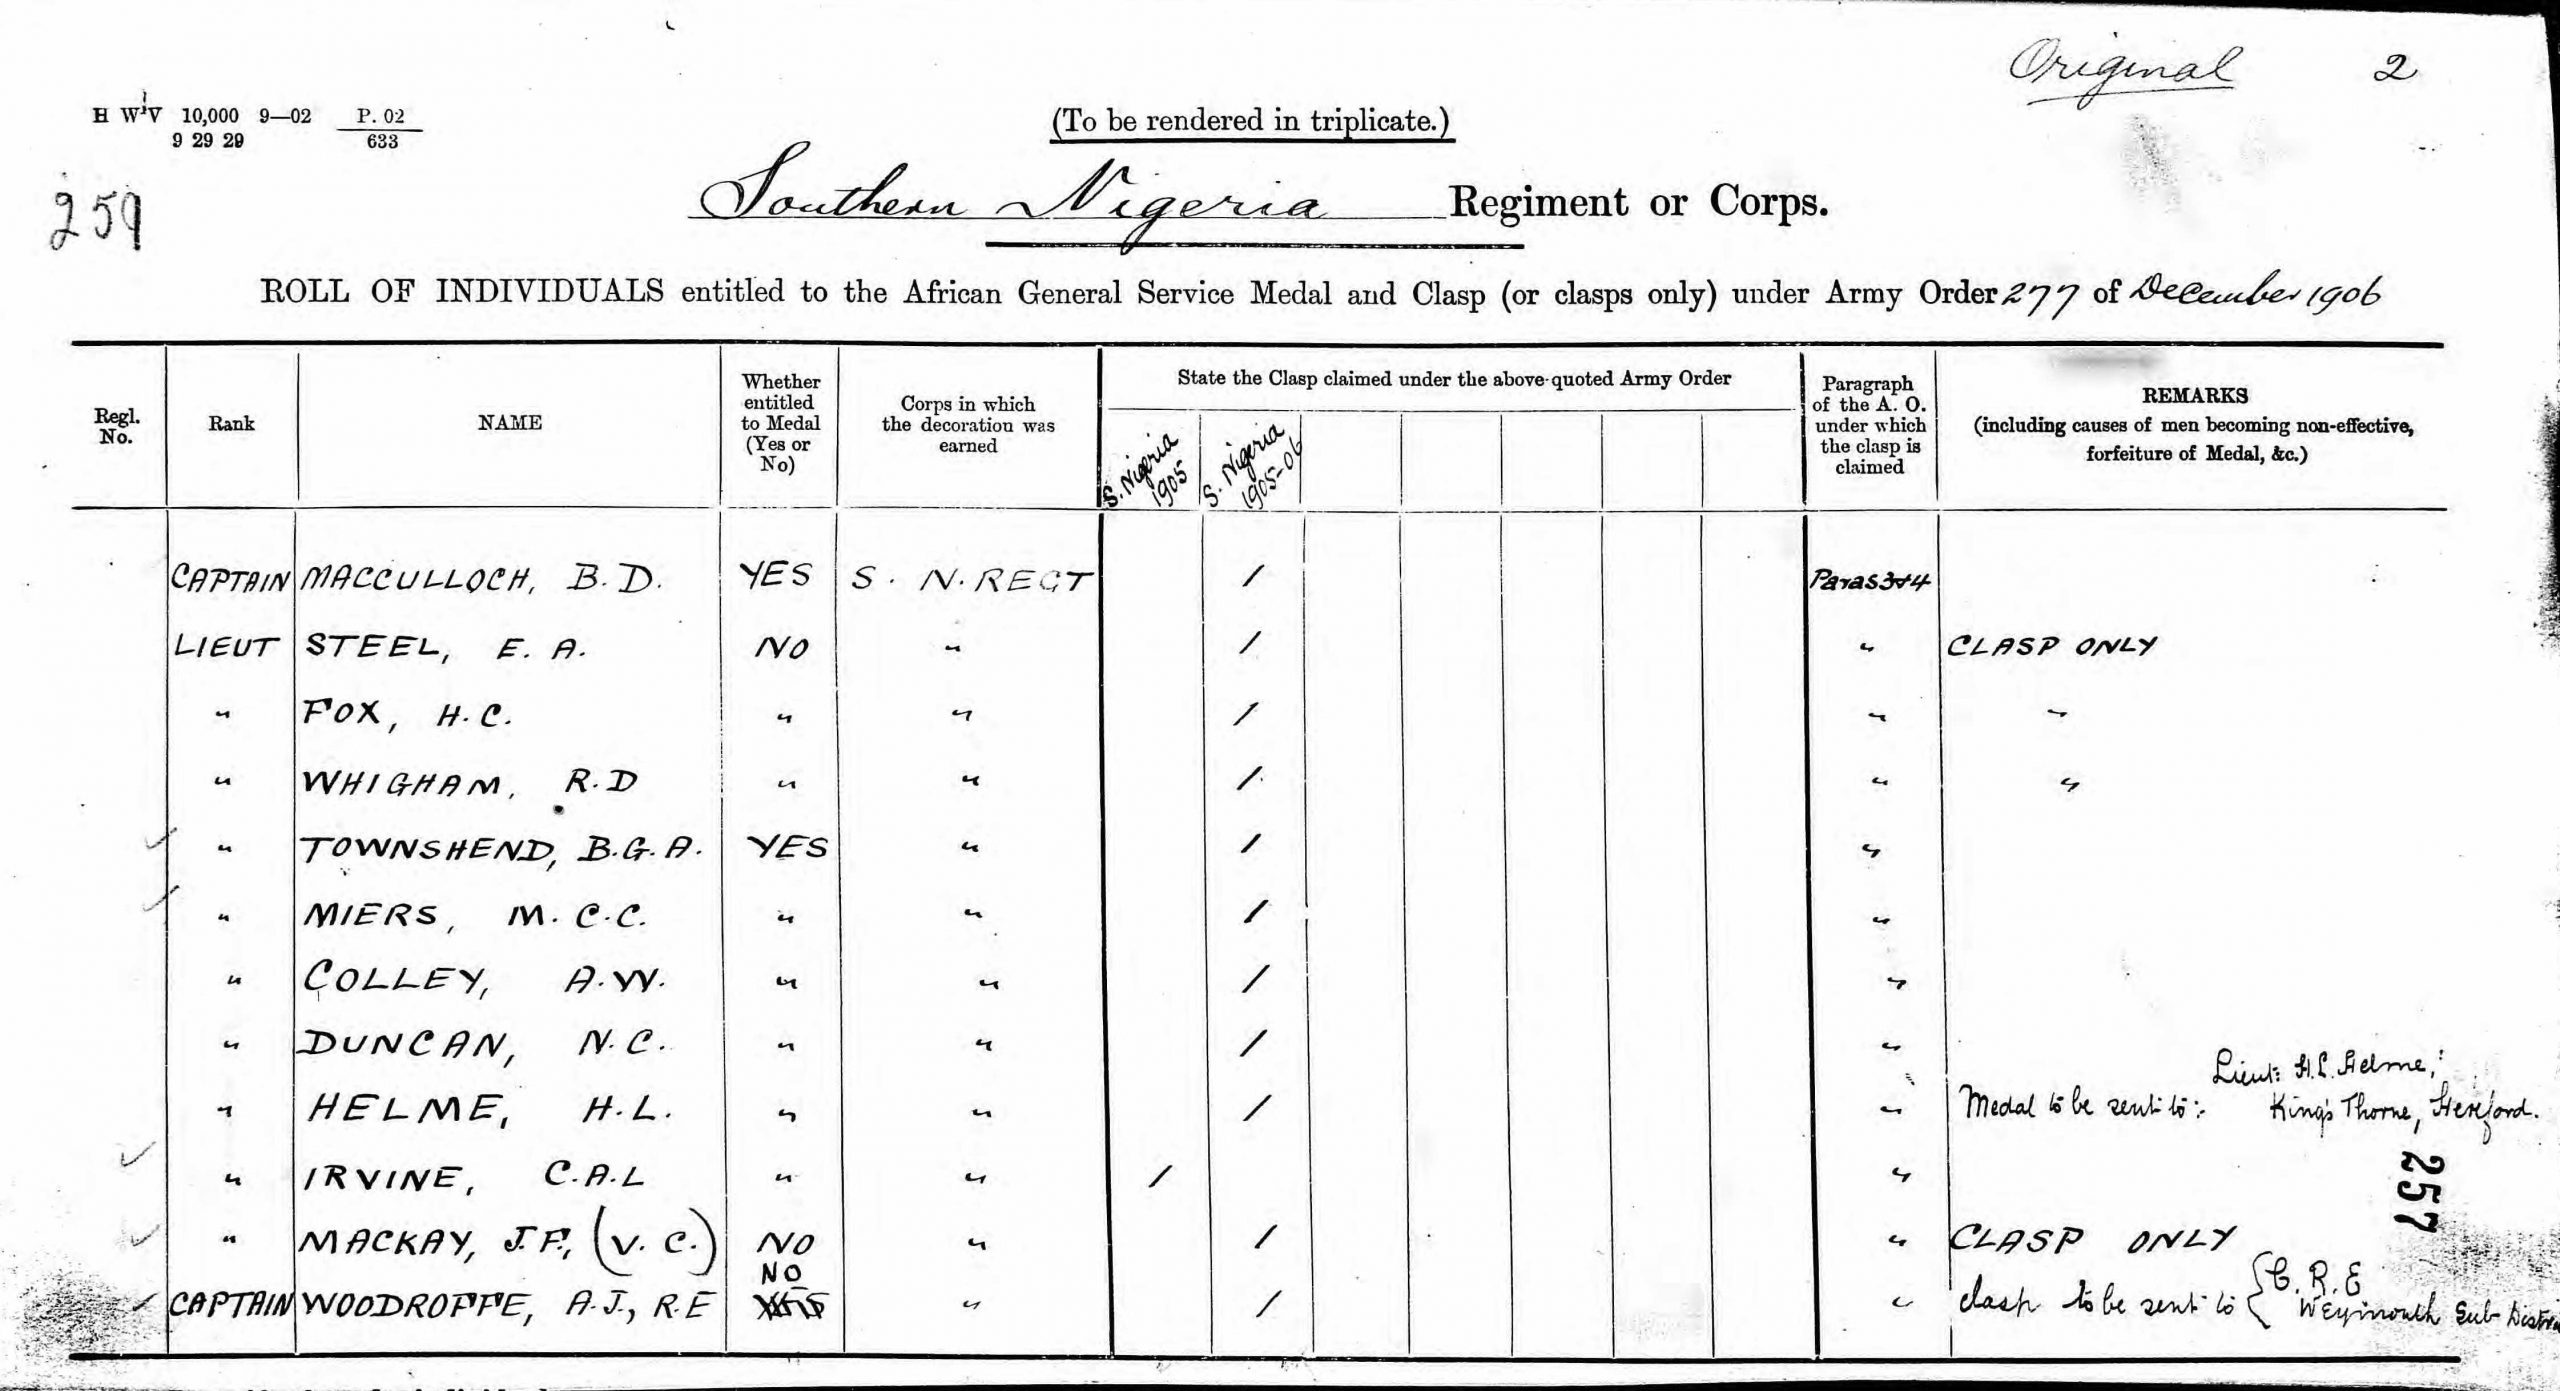 Original 2
H W¹V 10,000 9—02 P. 02
9 29 29 633
(To be rendered in triplicate.)
259
Southern Nigeria Regiment or Corps.
ROLL OF INDIVIDUALS entitled to the African General Service Medal and Clasp (or clasps only) under Army Order 277 of December 1906
Regl. No. Rank NAME Whether entitled to Medal (Yes or No) Corps in which the decoration was earned State the Clasp claimed under the above-quoted Army Order Paragraph of the A. O. under which the clasp is claimed REMARKS (including causes of men becoming non-effective, forfeiture of Medal, &c.)
S. Nigeria 1905 S. Nigeria 1905-06
CAPTAIN MACCULLOCH, B. D. YES S. N. REGT / Paras 3+4
LIEUT STEEL, E. A. NO " / " CLASP ONLY
" FOX, H. C. " " / " "
" WHIGHAM, R. D " " / " "
" TOWNSHEND, B. G. A. YES " / "
" MIERS, M. C. C. " " / "
" COLLEY, A. W. " " / "
" DUNCAN, N. C. " " / "
Lieut: H. L. Helme,
" HELME, H. L. " " / " Medal to be sent to:- King's Thorne, Hereford.
" IRVINE, C. A. L " " / "
257
" MACKAY, J. F., (V. C.) NO " / " CLASP ONLY
NO C. R. E
CAPTAIN WOODROFFE, A. J., R. E YES " / " clasp to be sent to { Weymouth Sub-Distri